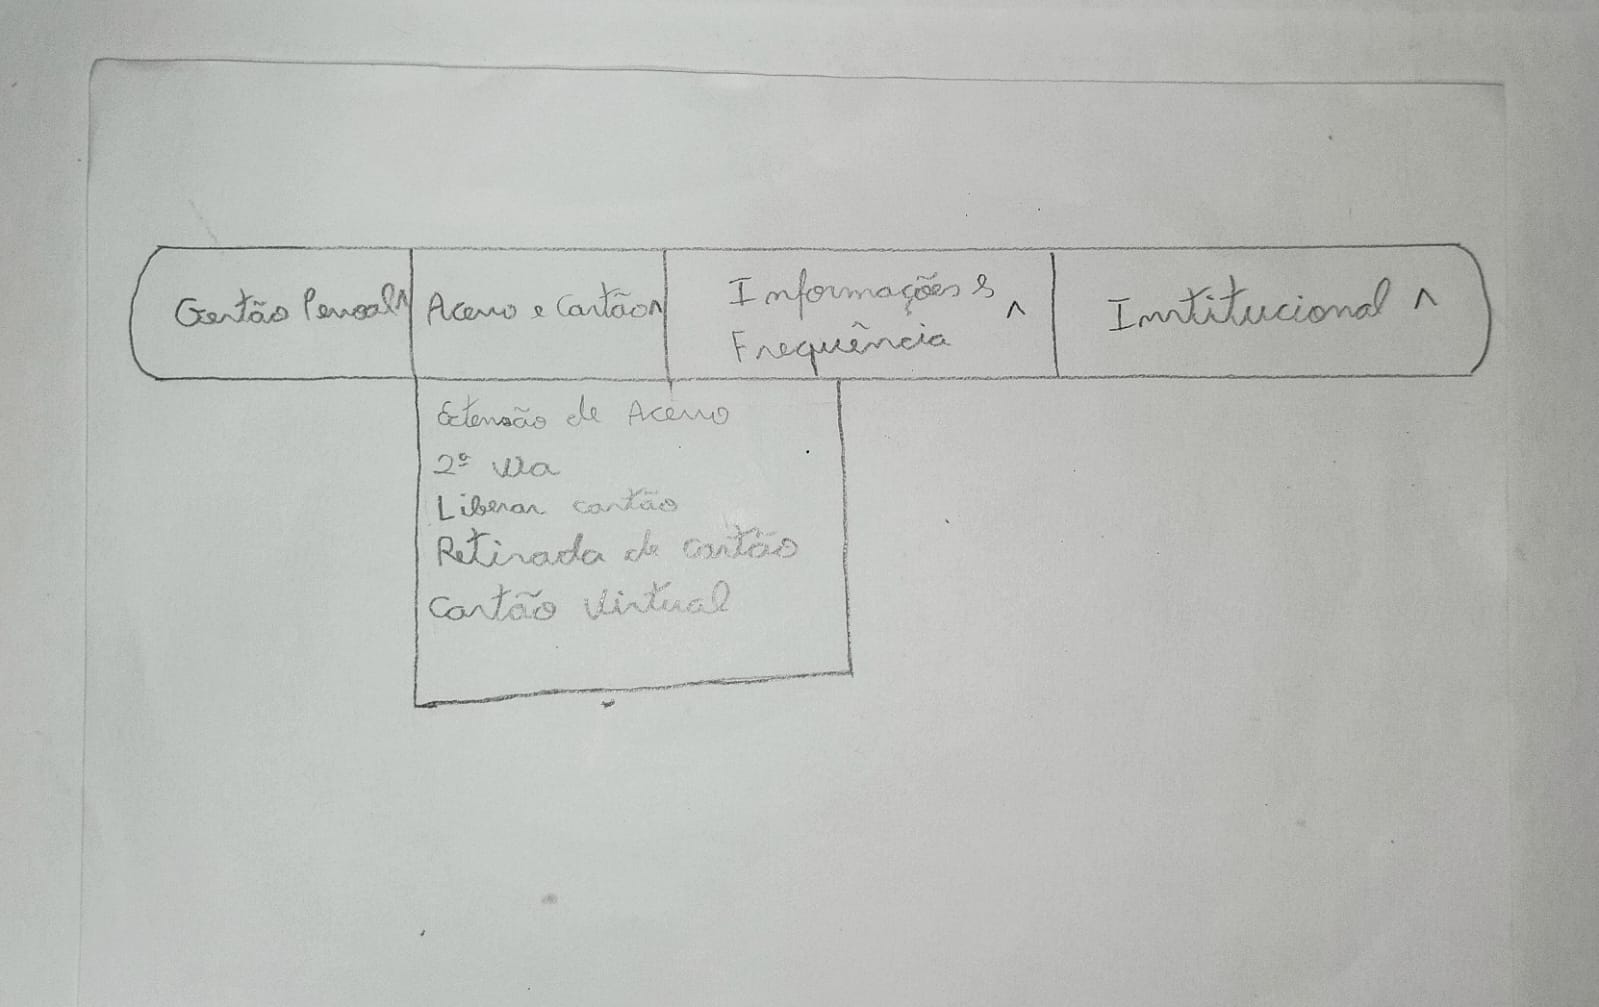 Gestão Pessoal ^
Acesso e Cartão ^
Informações &
Frequência ^
Institucional ^
Extensão de Acesso
2ª via
Liberar cartão
Retirada de cartão
Cartão Virtual